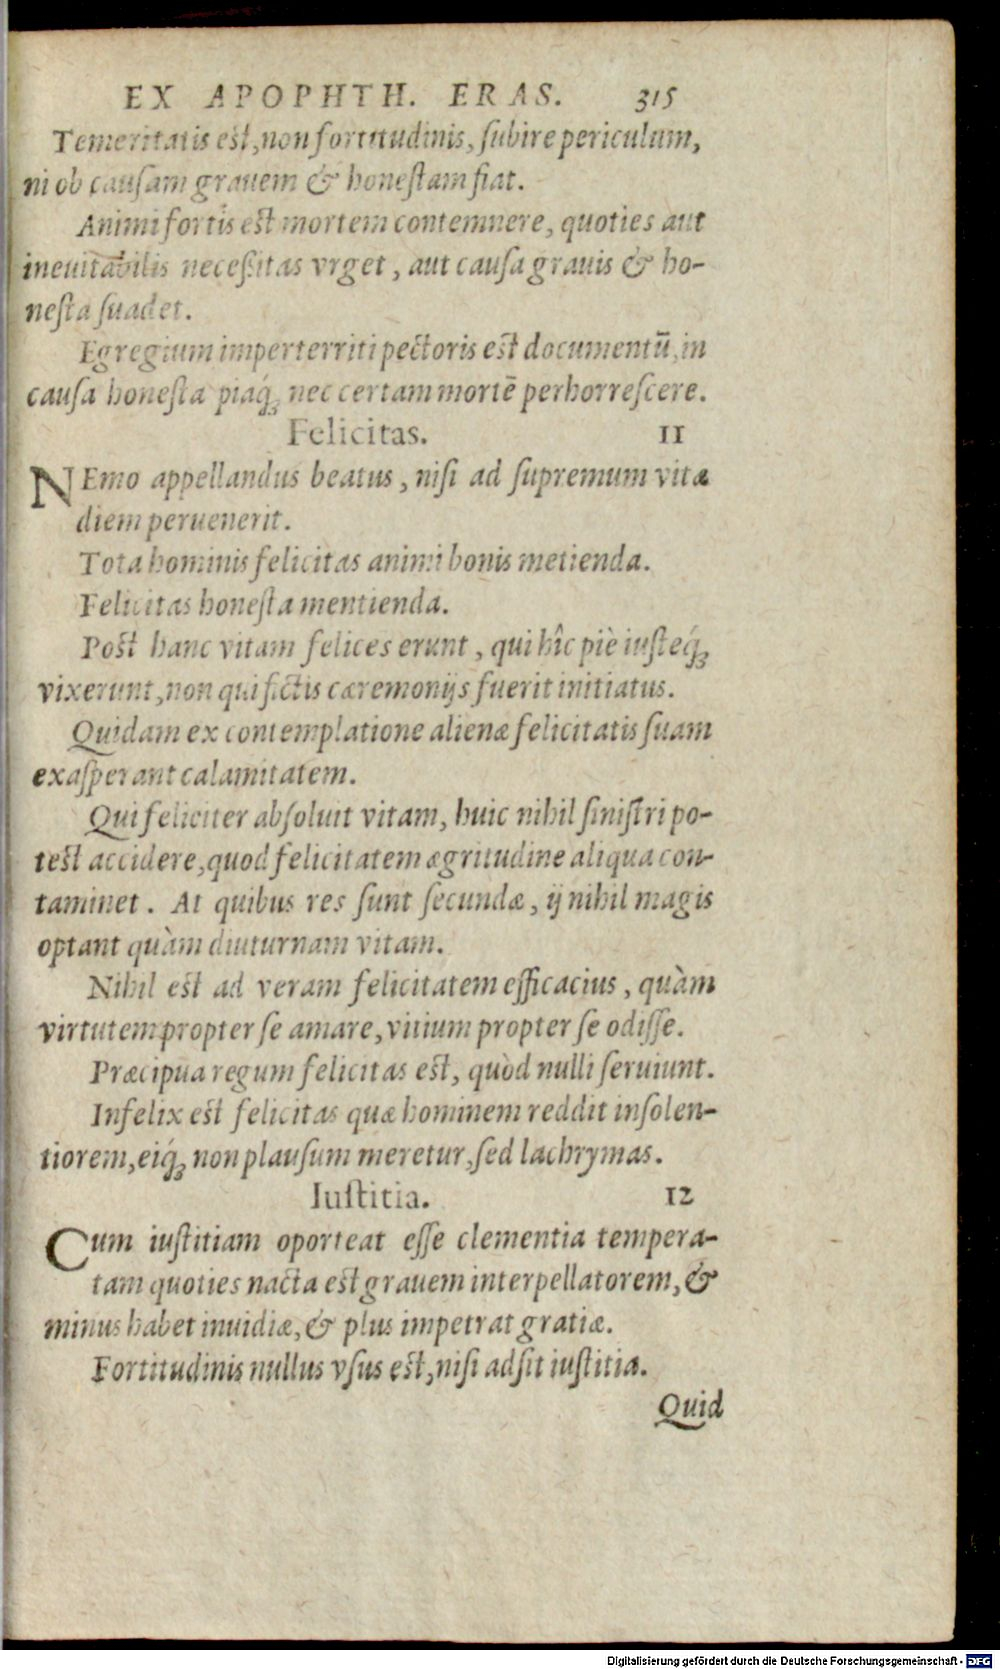 EX APOPHTH. ERAS. 315
Temeritatis est, non fortitudinis, subire periculum,
ni ob causam grauem & honestam fiat.
Animi fortis est mortem contemnere, quoties aut
ineuitabilis necessitas vrget, aut causa grauis & ho-
nesta suadet.
Egregium imperterriti pectoris est documentū, in
causa honesta piaq́; nec certam mortē perhorrescere.
Felicitas. 11
NEmo appellandus beatus, nisi ad supremum vitæ
diem peruenerit.
Tota hominis felicitas animi bonis metienda.
Felicitas honesta mentienda.
Post hanc vitam felices erunt, qui hîc piè iusteq́;
vixerunt, non qui fictis cæremonijs fuerit initiatus.
Quidam ex contemplatione alienæ felicitatis suam
exasperant calamitatem.
Qui feliciter absoluit vitam, huic nihil sinistri po-
test accidere, quod felicitatem ægritudine aliqua con-
taminet. At quibus res sunt secundæ, ij nihil magis
optant quàm diuturnam vitam.
Nihil est ad veram felicitatem efficacius, quàm
virtutem propter se amare, vitium propter se odisse.
Præcipua regum felicitas est, quòd nulli seruiunt.
Infelix est felicitas quæ hominem reddit insolen-
tiorem, eiq́; non plausum meretur, sed lachrymas.
Iustitia. 12
Cum iustitiam oporteat esse clementia tempera-
tam quoties nacta est grauem interpellatorem, &
minus habet inuidiæ, & plus impetrat gratiæ.
Fortitudinis nullus vsus est, nisi adsit iustitia.
Quid
Digitalisierung gefördert durch die Deutsche Forschungsgemeinschaft - DFG